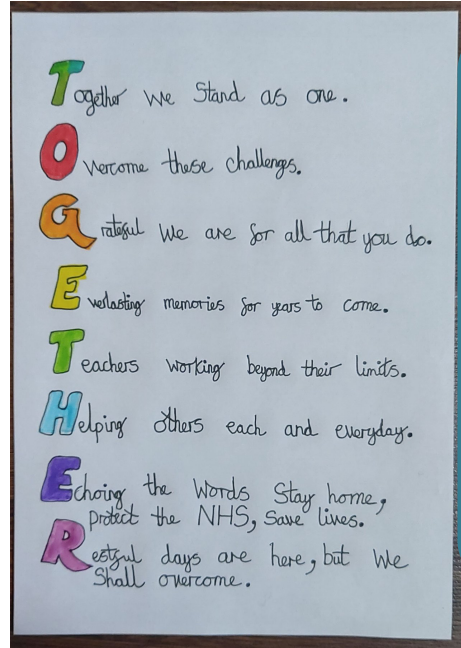 Together we stand as one.
Overcome these challenges.
Grateful we are for all that you do.
Everlasting memories for years to come.
Teachers working beyond their limits.
Helping others each and everyday.
Echoing the words Stay home,
protect the NHS, save lives.
Restful days are here, but we
shall overcome.